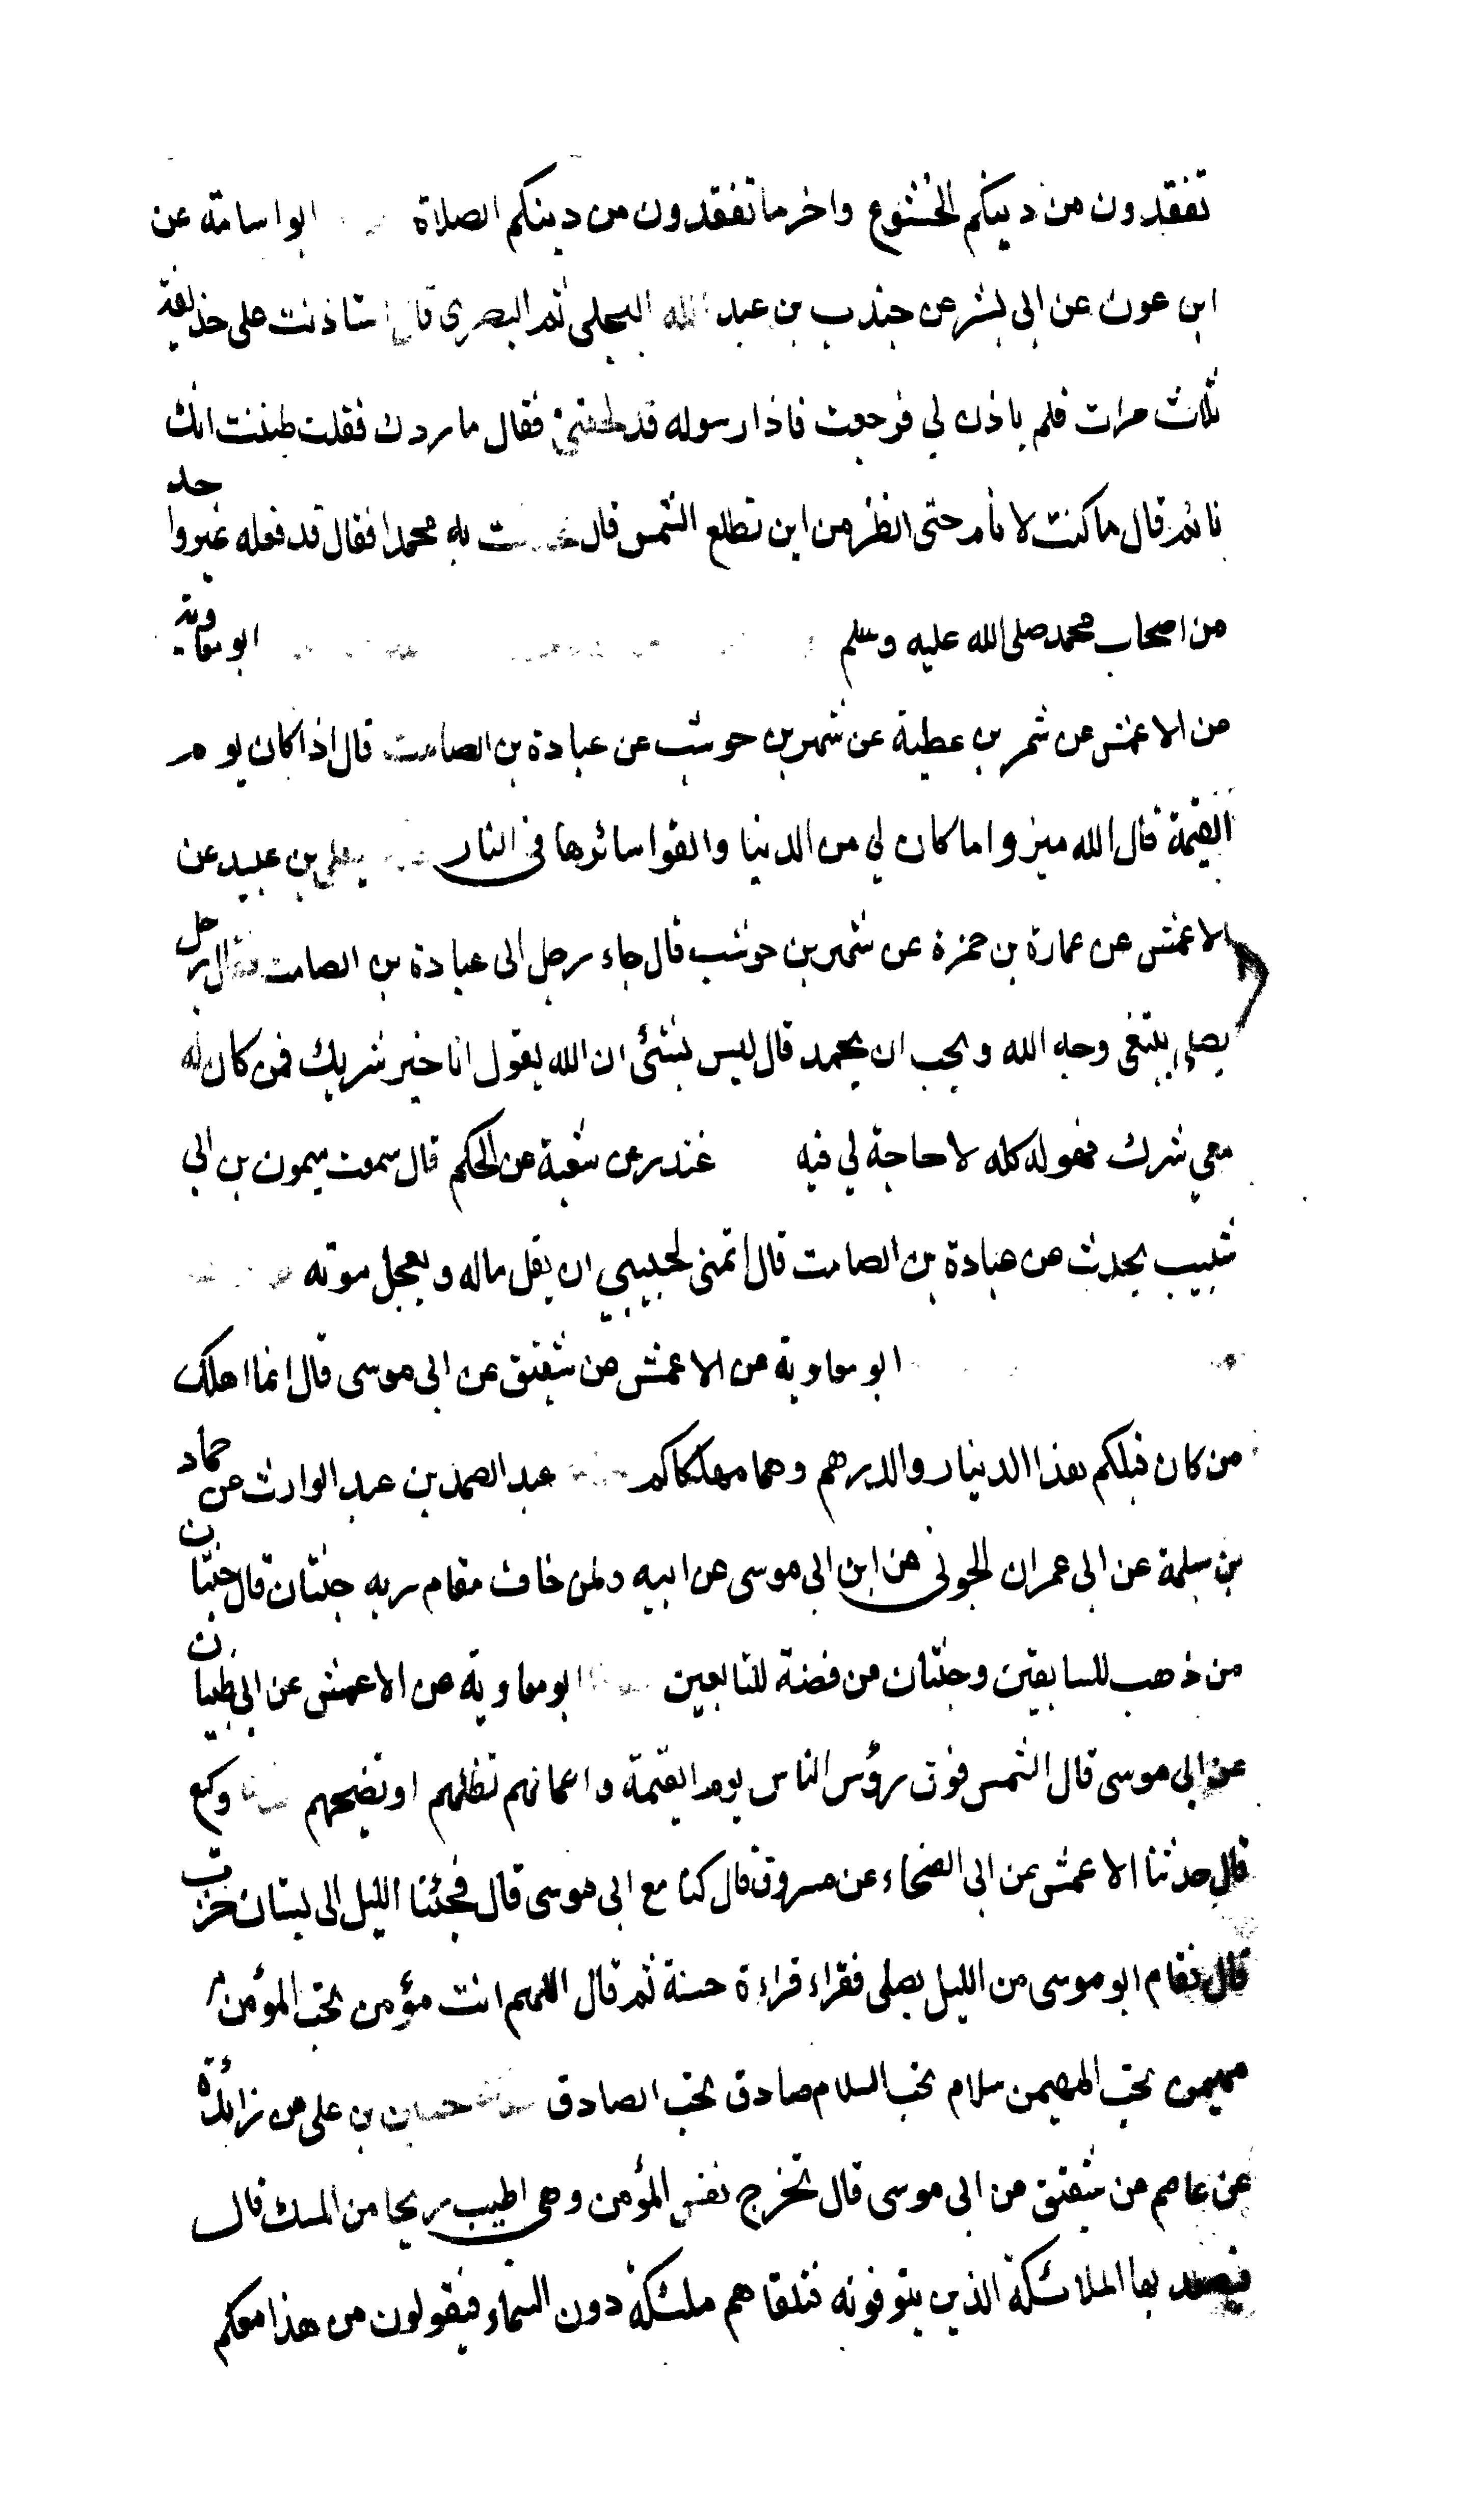 تفقدون من دينكم الخشوع واخر ما تفقدون من دينكم الصلاة ابو اسامة عن
ابن عون عن ابى بشر عن جندب بن عبد الله البجلى ثم البصرى قال استاذنت على حذيفة
ثلاث مرات فلم ياذن لي فرجعت فاذا رسوله قد لحقنى فقال ما ردك فقلت ظننت انك
نائم قال ما كنت لانام حتى انظر من اين تطلع الشمس قال به محمدا فقال قد فعله غير واحد
من اصحاب محمد صلى الله عليه وسلم ابو معاوية
عن الاعمش عن شمر بن عطية عن شهر بن حوشب عن عبادة بن الصامت قال اذا كان يوم
القيمة قال الله ميزوا ما كان لي من الدنيا والقوا سائرها فى النار يعلى بن عبيد عن
الاعمش عن عمارة بن حمزة عن شهر بن حوشب قال جاء رجل الى عبادة بن الصامت فقال رجل
يصلى يبتغى وجه الله ويحب ان يحمد قال ليس بشئ ان الله يقول انا خير شريك فمن كان له
معي شرك فهو له كله لا حاجة لي فيه غندر عن شعبة عن الحكم قال سمعت ميمون بن ابي
شبيب يحدث عن عبادة بن الصامت قال اتمنى لحبيبي ان يقل ماله ويعجل موته
ابو معاوية عن الاعمش عن شقيق عن ابى موسى قال انما اهلك
من كان قبلكم هذا الدينار والدرهم وهما مهلكاكم عبد الصمد بن عبد الوارث عن حماد
بن سلمة عن ابى عمران الجونى عن ابن ابى موسى عن ابيه ولمن خاف مقام ربه جنتان قال جنتان
من ذهب للسابقين وجنتان من فضة للتابعين ابو معاوية عن الاعمش عن ابى ظبيان
عن ابى موسى قال الشمس فوق رؤس الناس يوم القيمة واعمالهم تظلهم او تضحهم وكيع
قال حدثنا الاعمش عن ابى الضحاء عن مسروق قال كنا مع ابى موسى قال فجئنا الليل الى بستان خرب
قال فقام ابو موسى من الليل يصلى فقراء قراءة حسنة ثم قال اللهم انت مؤمن تحب المؤمن
مهيمن تحب المهيمن سلام تحب السلام صادق تحب الصادق حسين بن على عن زائدة
عن عاصم عن شقيق عن ابى موسى قال تخرج نفس المؤمن وهى اطيب ريحا من المسك قال
فيصعد بها الملائكة الذين يتوفونه فتلقاهم ملئكة دون السماء فيقولون من هذا معكم